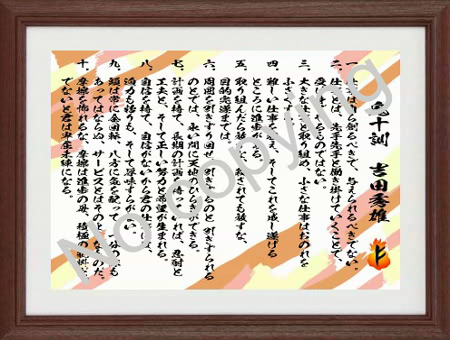 十訓 吉田秀雄
一、仕事は自ら創るべきで、与えられるべきでない。
二、仕事とは、先手先手と働き掛けていくことで、
受け身でやるものではない。
三、大きな仕事と取り組め、小さな仕事はおのれを
小さくする。
四、難しい仕事を狙え、そしてこれを成し遂げる
ところに進歩がある。
五、取り組んだら放すな、殺されても放すな、
目的完遂までは。
六、周囲を引きずり回せ、引きずるのと引きずられる
のとでは、永い間に天地のひらきができる。
七、計画を持て、長期の計画を持っていれば、忍耐と
工夫と、そして正しい努力と希望が生まれる。
八、自信を持て、自信がないから君の仕事には、
迫力も粘りも、そして厚味すらがない。
九、頭は常に全回転、八方に気を配って、一分の隙も
あってはならぬ、サービスとはそのようなものだ。
十、摩擦を怖れるな、摩擦は進歩の母、積極の肥料だ、
でないと君は卑屈未練になる。
No Copying